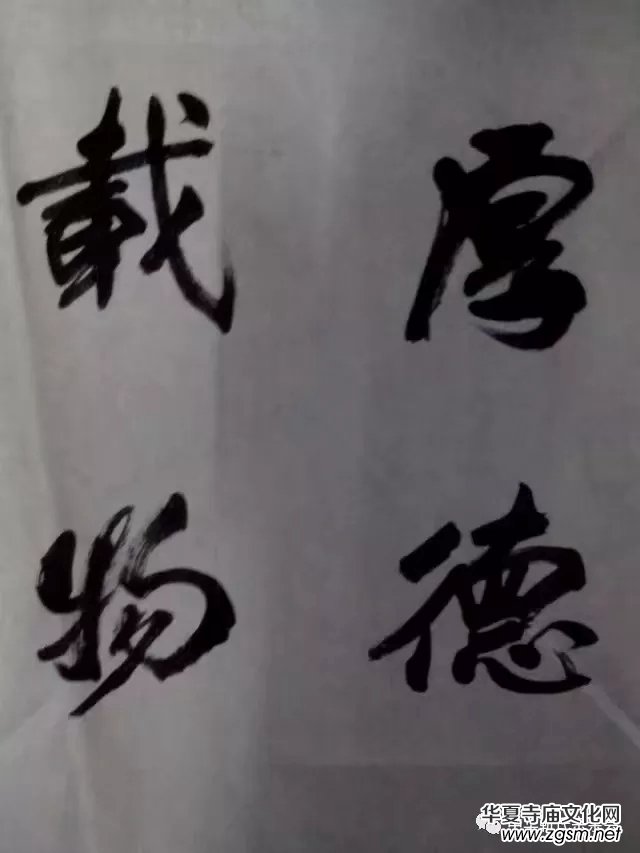 厚德
载物
华夏寺庙文化网
www.zgsm.net